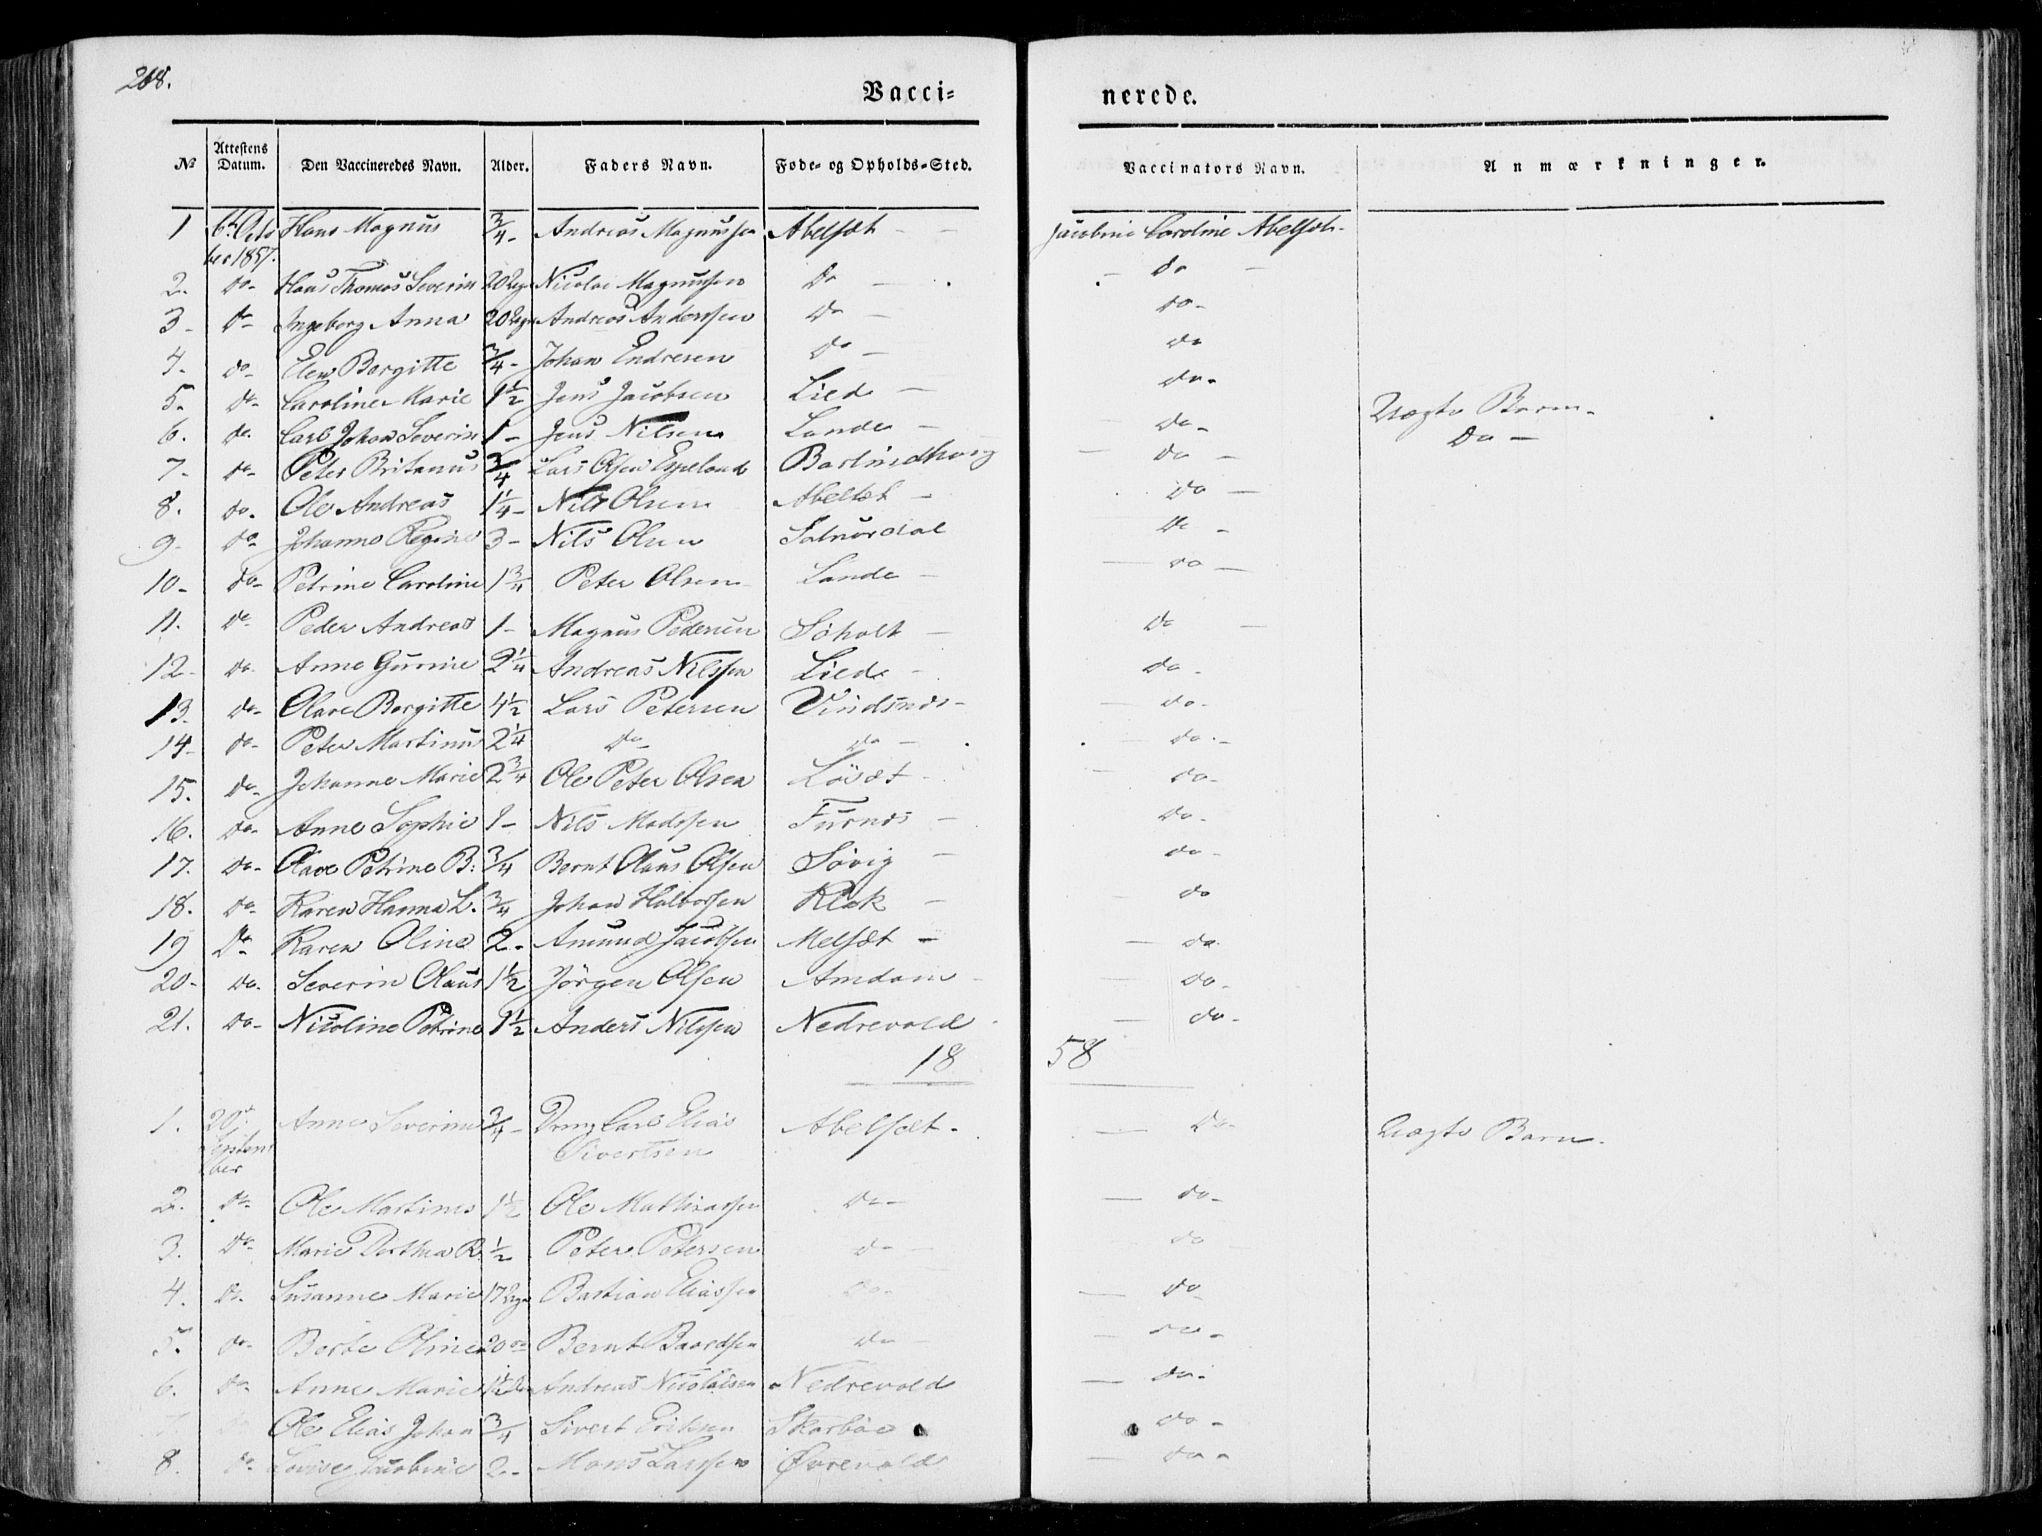 268.
Vacci= nerede.
No Attestens Datum. Den Vaccineredes Navn. Alder. Faders Navn. Føde- og Opholds-Sted. Vaccinators Navn. Anmærkninger.
1 6te Octo Hans Magnus 3/4 - Andreas Magnussen Abelsæt - - Jacobine Caroline Abelset-
ber 1857.
2. do- Hans Thomas Severin 20 Nicolai Magnussen Do - - do -
3- do- Ingeborg Anna 20 Andreas Anderssen Do - do-
4- do- Elen Bergitte 3/4 - Johan Endresen Do - do
5. do- Caroline Marie 1 1/2 Jens Jacobsen Lied - do- Uægte Barn-
6. do. Carl Johan Severin 1 - Jens Nilsen Lande - do- Do -
7- do- Peter Britanus 3/4 Lars Olsen Espeland Barlindhoug - do -
8. do. Ole Andreas 1 1/4 - Nils Olsen Abelset - do -
9- do- Johanne Regine 3 - Nils Olsen Solnørdal do -
10- do- Petrine Caroline 1 3/4 Peter Olsen Lande - - do -
11. do- Peder Andreas 1 - Magnus Pedersen Søholt - do -
12- do. Anne Gurine 2 1/4 Andreas Nilssen Liede - do -
13. do- Olave Bergitte 4 1/2 Lars Petersen Vindsnes- - do-
14- do- Peter Martinus 2 1/4 do- do - - do. -
15. do- Johanne Marie 2 3/4 Ole Peter Olsen Løvæt - - do-
16. do- Anne Sophie 1 - Nils Madssen Furnes - do-
17. do- Olave Petrine B: 3/4 Bernt Olaus Olsen Søvig - do-
18. do- Karen Hanna L. 3/4 Johan Halvorsen Klok - - do
19 do- Karen Oline 2 - Amund Jacobsen Melsæt - - do.
20- do. Severin Olaus 1 1/2 Jørgen Olsen Amdam - - do.
21. do- Nicoline Petrine 1 1/2 Anders Nilssen Nedrevold - do-
18 58
1. 20de Anne Severine 3/4 - Drng Carl Elias Abelsæt. - do- Uægte Barn.
Septem Sivertsen
ber
2. do- Ole Martinus 1 1/2 Ole Mathiassen do - - do-
3. do- Marie Dorthea R. 1/2 Peter Petersen do - do
4. do. Susanne Marie 17 Bastian Eliassen do. - do
5. do- Berte Oline 20 Bernt Baardsen do - do-
6. do- Anne Marie 1 1/2 Andreas Nicolaisen Nedrevold - do-
7 Ole Elias Johan 3/4 Sivert Eriksen Skarbøe do -
8. do- Lovise Jacobine 2 - Mons Larssen Øvrevold - do -